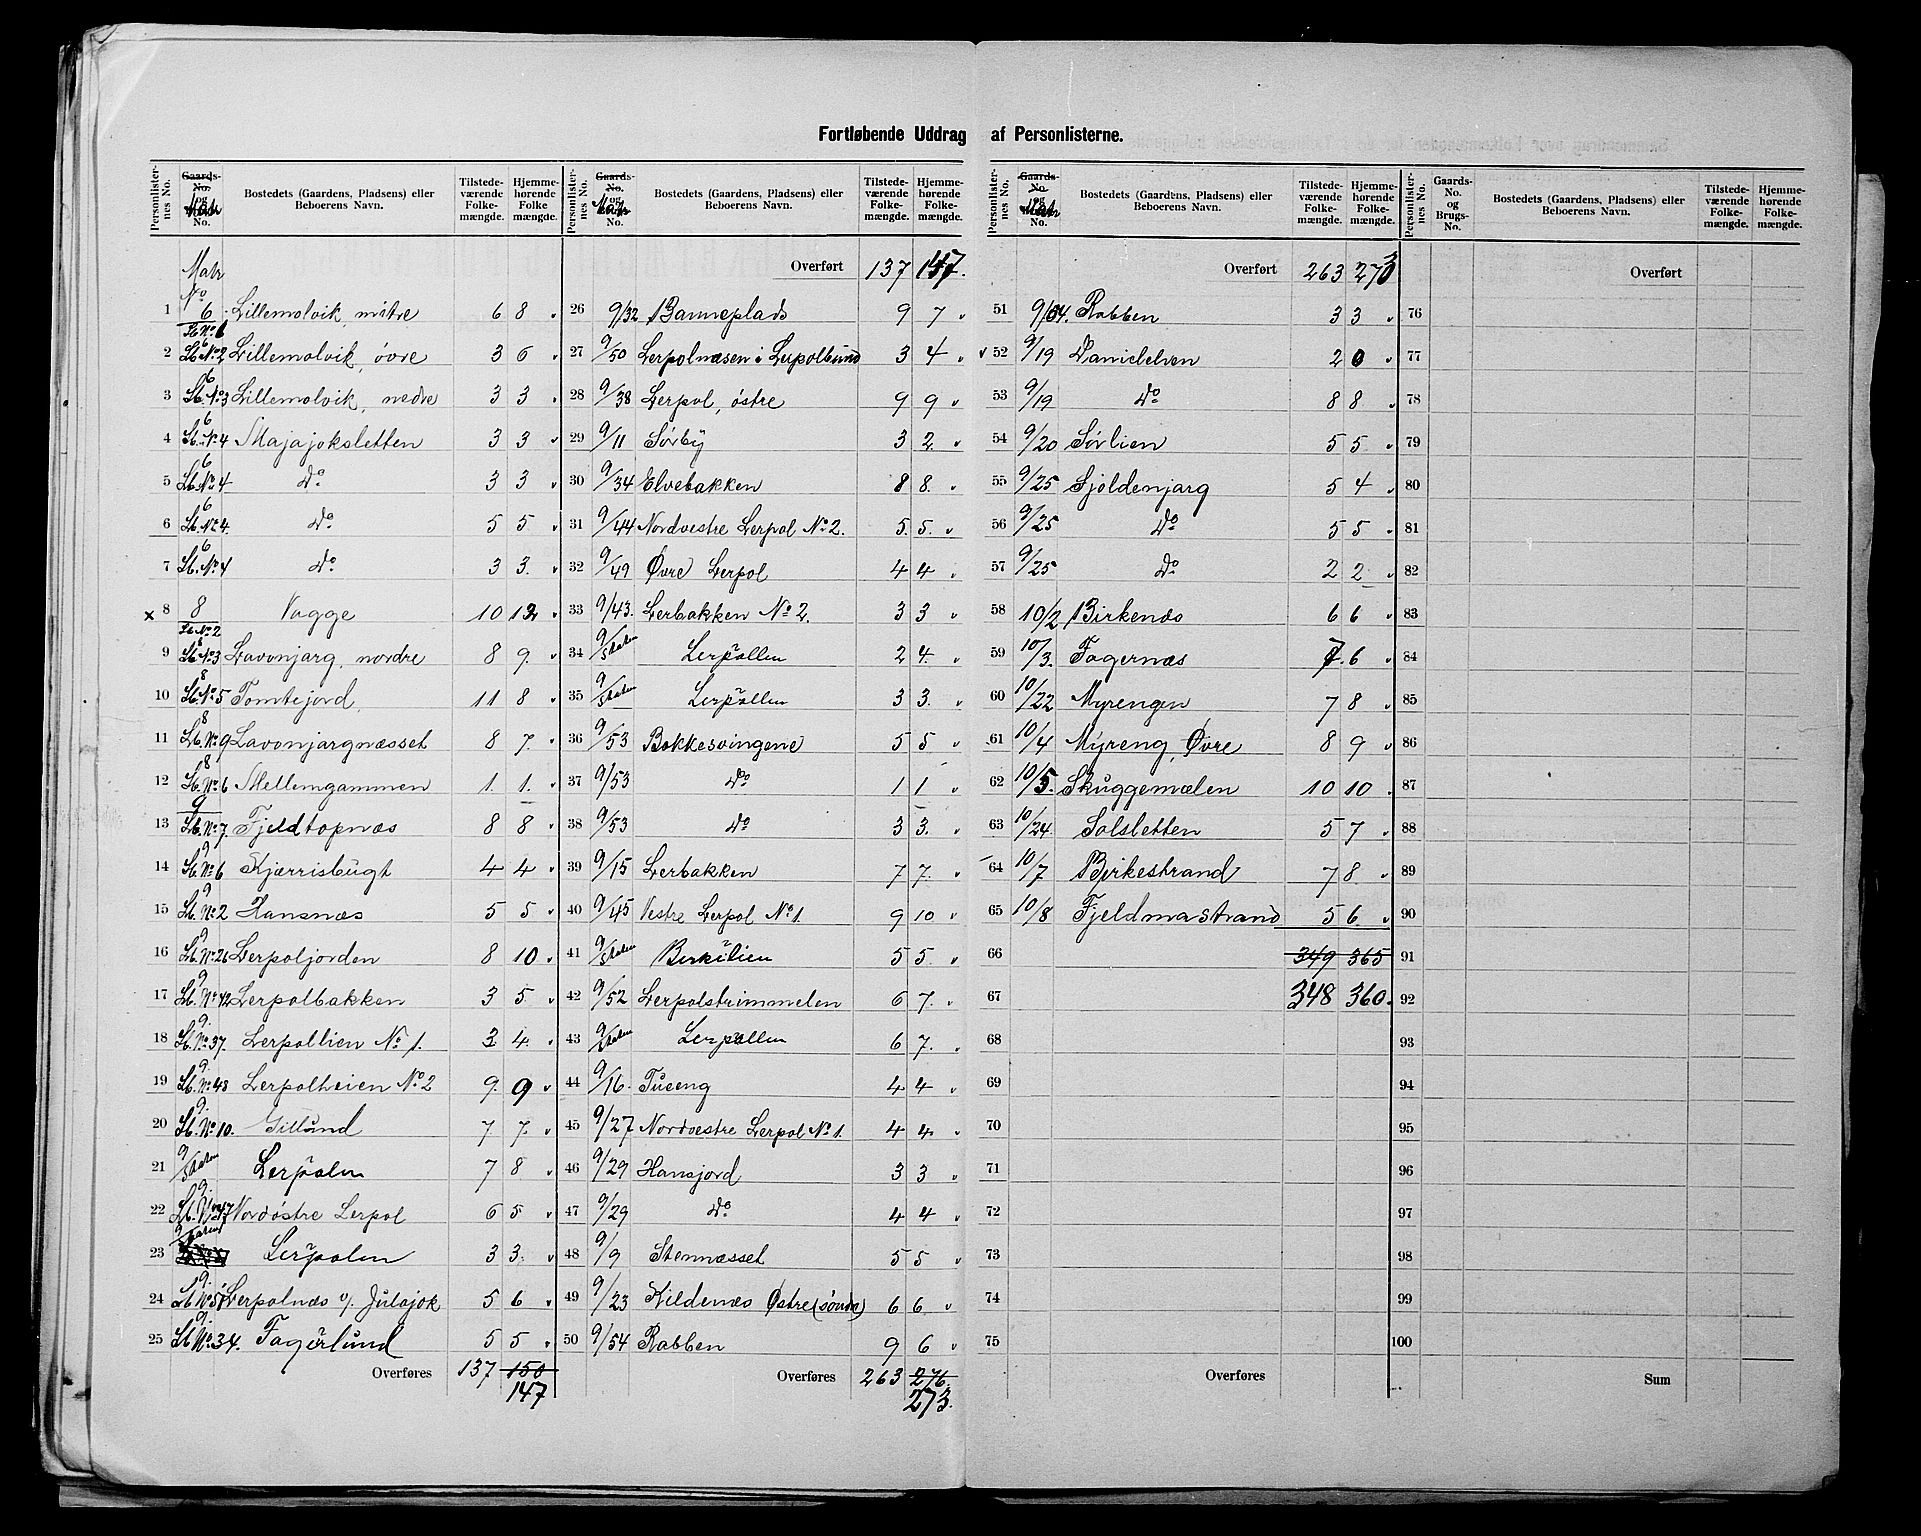 Fortløbende Uddrag af Personlisterne.
Personlister-nes No. | Gaards-No. og Matr No. | Bostedets (Gaardens, Pladsens) eller Beboerens Navn. | Tilstede-værende Folke-mængde. | Hjemme-hørende Folke-mængde.
Matr No
1 6 Lb No 1 Lillemolvik, mitre 6 8
2 6 Lb No 2 Lillemolvik, øvre 3 6
3 6 Lb. No 3 Lillemolvik, nedre 3 3
4 6 Lb. No 4 Majajoksletten 3 3
5 6 Lb. No 4 Do 3 3
6 6 Lb. No 4. Do 5 5
7 6 Lb. No 4 Do 3 3.
x 8 8 Lb No 2 Vagge 10 12
9 8 Lb No 3 Lavonjarg, nordre 8 9.
10 8 Lb. No 5 Tomtejord, 11 8
11 8 Lb. No 9 Lavonjargnæsset 8 7.
12 8 Lb. No 6 Mellemgammen 1. 1.
13 9 Lb. No 7. Fjeldtopnæs 8 8
14 9 Lb No 6 Skjærrisbugt 4 4
15 9 Lb. No 2 Hansnæs 5 5
16 9 Lb. No 26 Lerpoljorden 8 10
17 9 Lb. No 42 Lerpolbakken 3 5
18 9. Lb. No 37. Lerpollien No 1. 3 4.
19 9. Lb. No 48 Lerpolheien No 2 9. 9
20 9. Lb. No 10. Gillund 7 7.
21 9/Staten Lerpolen 7 8
22 9. Lb. No 47 Nordøstre Lerpol 6 5
23 9 Staten Lerpolen 3 3.
24 9. Lb No 51 Lerpolnæs v/. Julajok 5 6
25 9. Lb No 34. Fagerlund 5 5
Overføres 137 150
147
Personlister-nes No. | Gaards-No. og Matr No. | Bostedets (Gaardens, Pladsens) eller Beboerens Navn. | Tilstede-værende Folke-mængde. | Hjemme-hørende Folke-mængde.
Overført 137 147.
26 9/32 Banneplads 9 7
27 9/50 Lerpolnæsen i Lerpolbund 3 4
28 9/38 Lerpol, østre 9 9
29 9/11 Sørby 3 2.
30 9/34 Elvebakken 8 8.
31 9/44 Nordvestre Lerpol No 2. 5. 5.
32 9/49 Øvre Lerpol 4 4
33 9/43. Lerbakken No 2. 3 3
34 9/Staten Lerpollen 2 4.
35 9/Staten Lerpollen 3 3.
36 9/53 Bakkesvingene 5 5
37 9/53 Do 1 1
38 9/53 Do 3 3.
39 9/15 Lerbakken 7 7.
40 9/45 Vestre Lerpol No 1. 9 10
41 9/Staten Birkilien 5 5
42 9/52 Lerpolstrimmelen 6 7.
43 9/Staten Lerpollen 6 7.
44 9/16. Tueeng 4 4
45 9/27 Nordvestre Lerpol No 1. 4 4
46 9/29 Hansjord 3 3
47 9/29 Do 4 4
48 9/9 Stennæsset 5 5
49 9/23 Kildenæs Østre (søndr) 6 6.
50 9/54 Rabben 9 6
Overføres 263 276.
273.
Personlister-nes No. | Gaards-No. og Matr No. | Bostedets (Gaardens, Pladsens) eller Beboerens Navn. | Tilstede-værende Folke-mængde. | Hjemme-hørende Folke-mængde.
Overført 263 273
51 9/54. Rabben 3 3
52 9/19 Danielelven 2 0
53 9/19 Do 8 8
54 9/20 Sørlien 5 5
55 9/25 Sjoldenjarg 5 4
56 9/25 Do 5 5
57 9/25 Do 2 2
58 10/2 Birkenæs 6 6
59 10/3. Fagernæs 7. 6
60 10/22 Myrengen 7 8
61 10/4 Myreng, Øvre 8 9
62 10/5. Skuggemælen 10 10
63 10/24. Solsletten 5 7
64 10/7 Birkestrand 7 8
65 10/8 Fjeldmastrand 5 6
66 349 365
67 348 360.
68
69
70
71
72
73
74
75
Overføres
Personlister-nes No. | Gaards-No. og Brugs-No. | Bostedets (Gaardens, Pladsens) eller Beboerens Navn. | Tilstede-værende Folke-mængde. | Hjemme-hørende Folke-mængde.
Overført
76
77
78
79
80
81
82
83
84
85
86
87
88
89
90
91
92
93
94
95
96
97
98
99
100
Sum